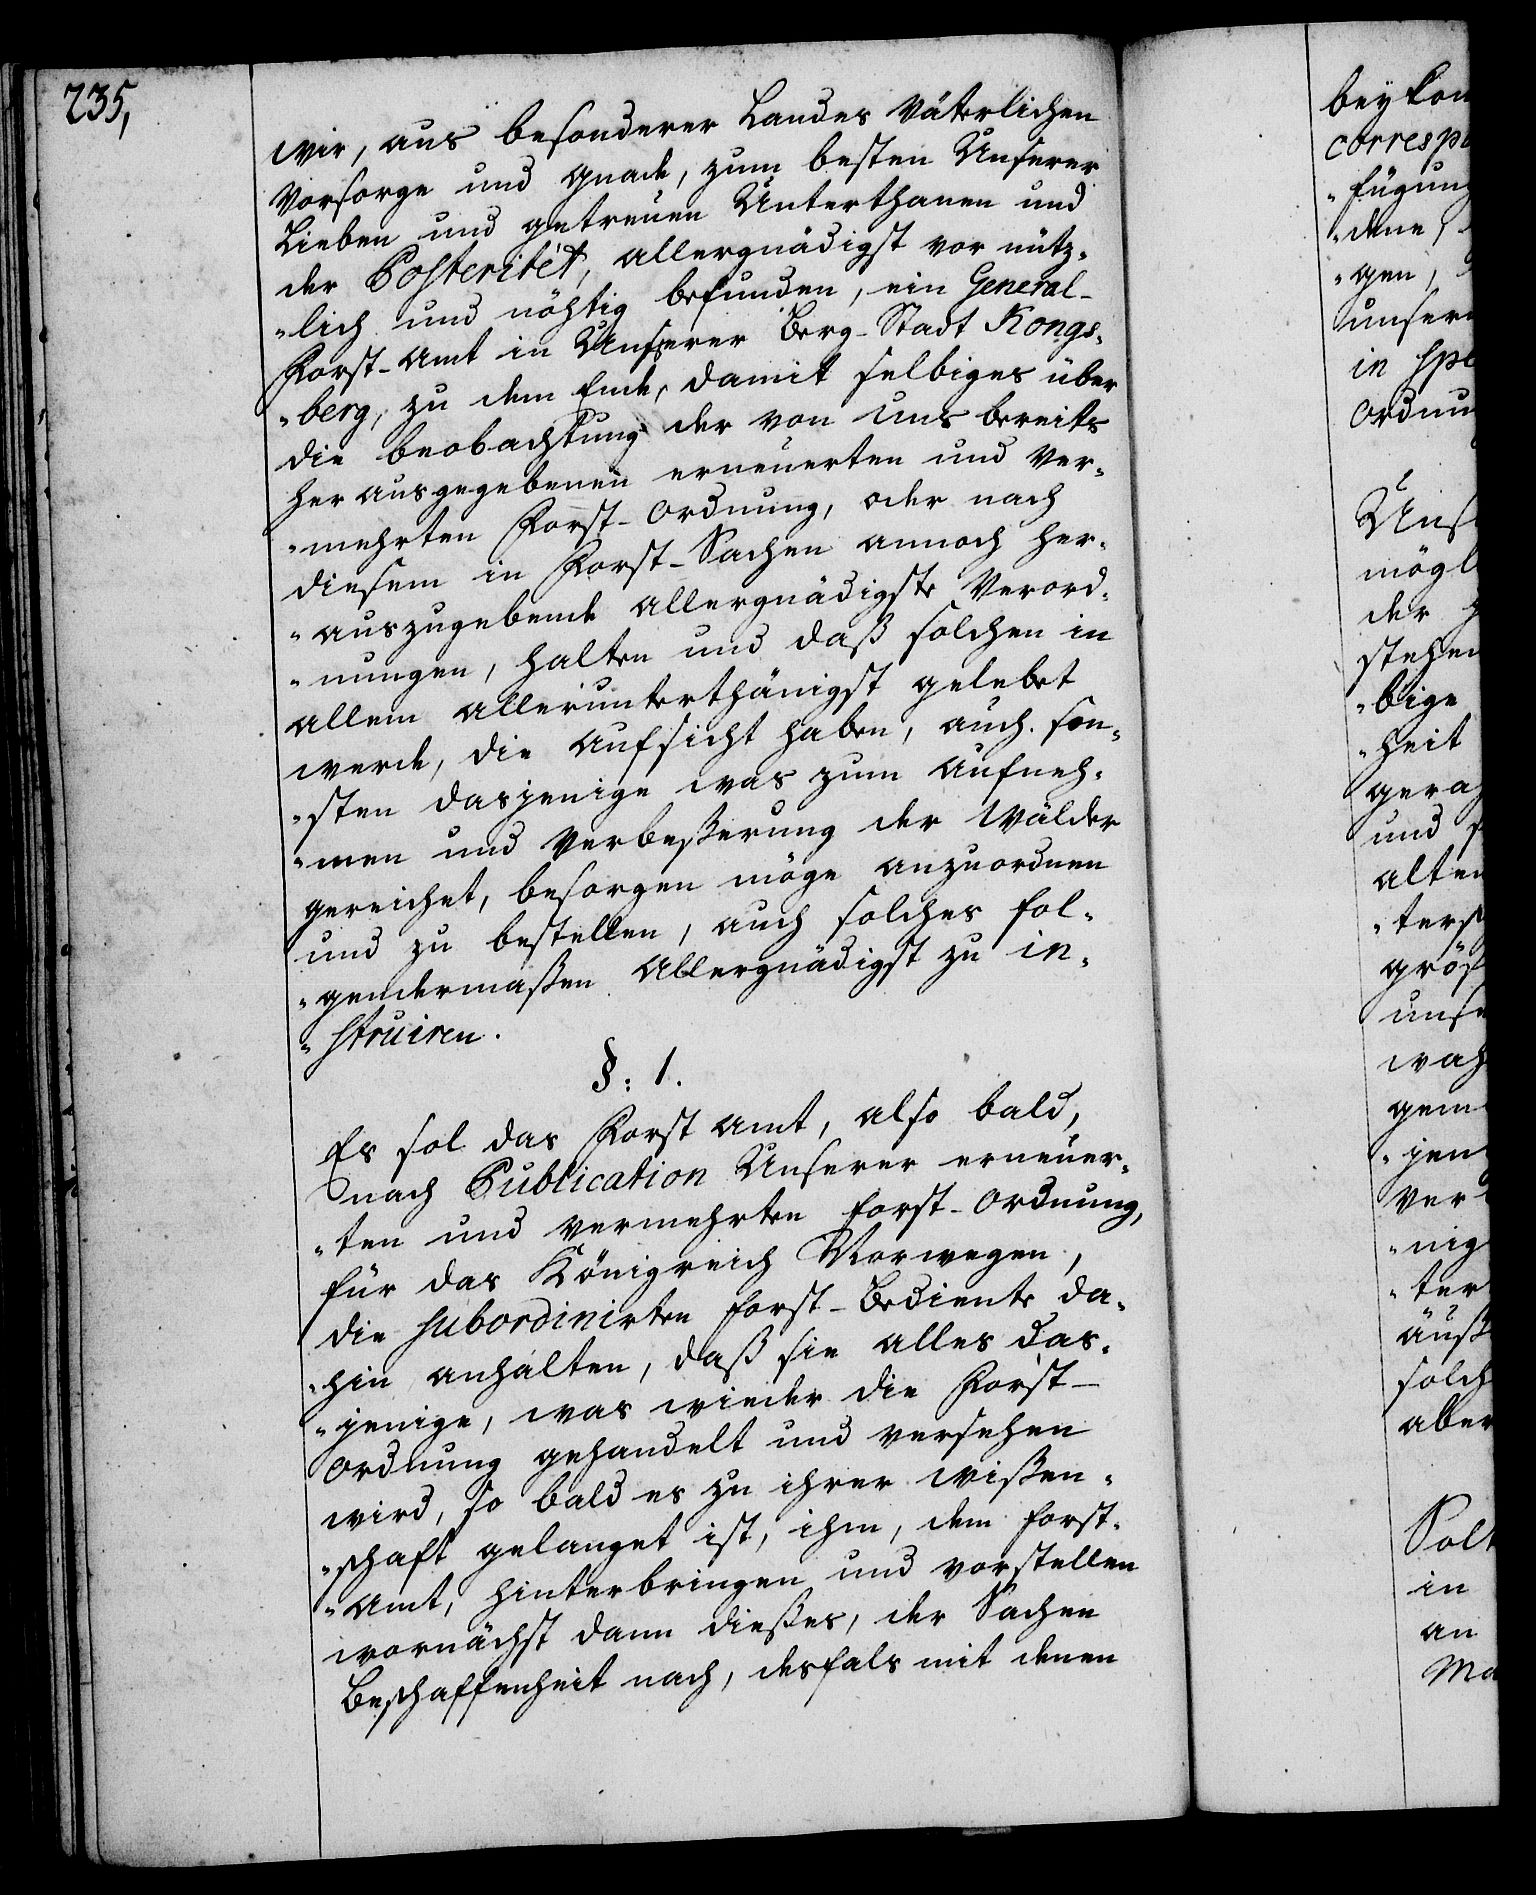 235,
wir, aus besonderer Landes Väterlichen
Vorsorge und Gnade, zum besten Unserer
Lieben und getreuen Unterthanen und
der Posteritét, allergnädigst vor nütz-
"lich und nöhtig befunden, ein General-
Forst-Amt in Unserer Berg-Stadt Kongs-
"berg, zu dem Ende, damit selbiges über
die beobachtung der von Uns bereits
herausgegebenen erneuerten und Ver-
"mehrten Forst-Ordnung, oder nach
diesem in Forst-Sachen annoch her-
"auszugebende allergnädigste Verord-
"nungen, halten und daß solchen in
allem allerunterthänigst gelebet
werde, die Aufsicht haben, auch son-
"sten dasjenige was zum Aufneh-
"men und Verbeßerung der Wälder
gereichet, besorgen möge anzuordnen
und zu bestellen, auch solches fol-
"gendermaßen Allergnädigst zu in-
"struiren.
§: 1.
Es sol das Forst Amt, also bald,
nach Publication Unserer erneuer-
"ten und vermehrten Forst-Ordnung,
für das Königreich Norwegen,
die subordinirten Forst-Bediente da-
"hin anhalten, daß sie alles das-
"jenige, was wieder die Forst-
Ordnung gehandelt und versehen
wird, so bald es zu ihrer wißen-
"schaft gelanget ist, ihm, dem Forst-
"Amt, hinterbringen und vorstellen
wornächst dann dießes, der Sachen
Beschaffenheit nach, desfals mit denen
bey kom
corresp
"fügung
"dene,
"gen,
unsere
in spe
Ordnu
Uns
mögl
der
stehen
"bige
"heit
gera
und
alten
"ters
größ
uns
wah
gem
"jen
ver
"nig
"ter
äuß
solch
aber
Solt
in
an
Ma